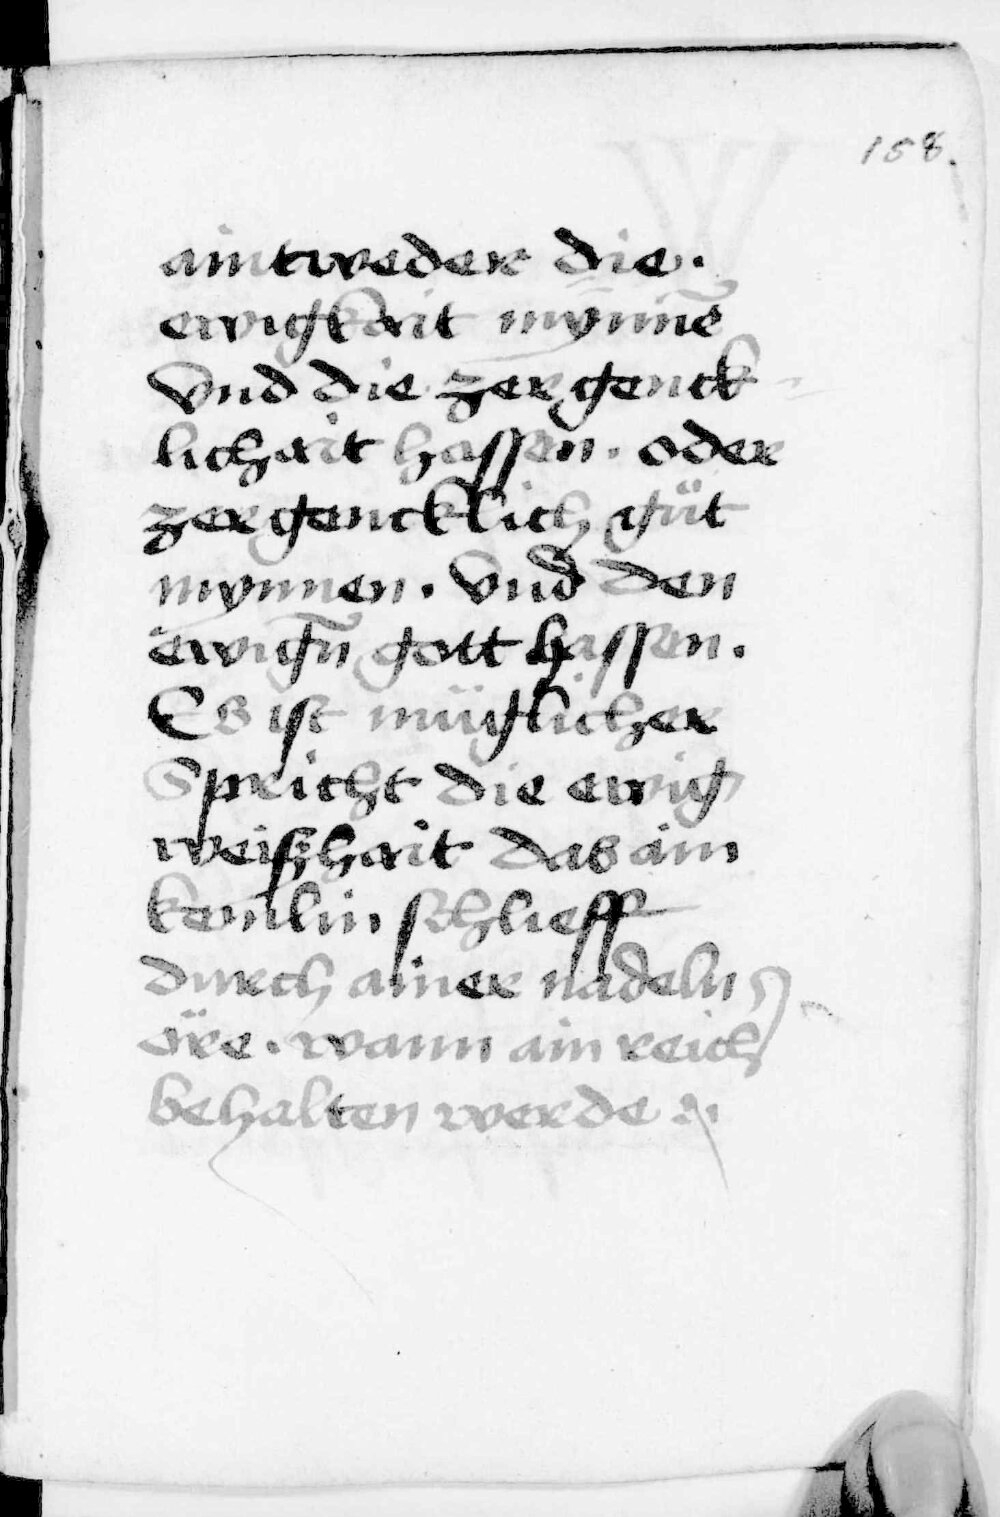 158.
aintweder die.
ewigkait mynnē
vnd die zergenck-
lichait hassen. oder
zergencklich gůt
mynnen. vnd den
ewigñ gott hassen.
Es ist müglicher
Spricht die ewig
weißhait das ain
kemlin schlieff
durch ainer nadeln
öre. wann ain reich
behalten werde.